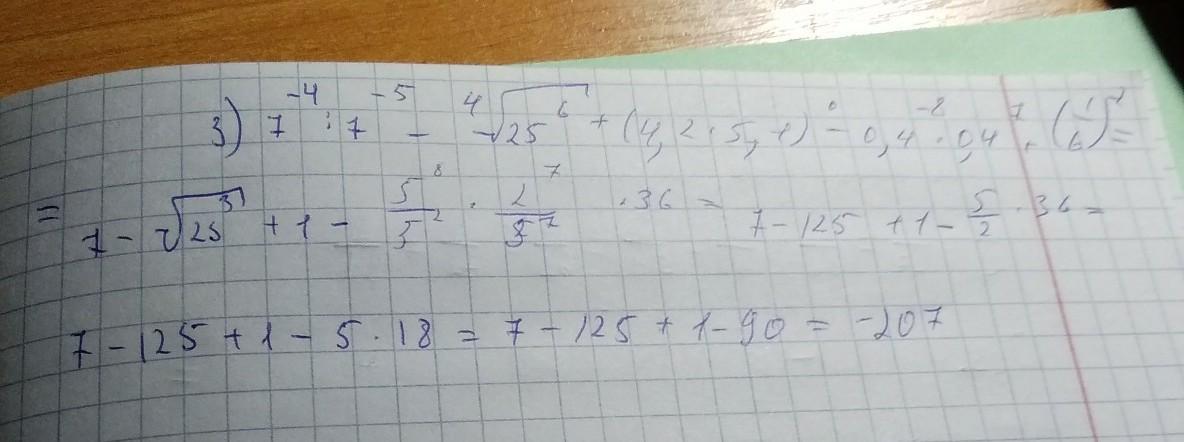 3) 7^{-4} : 7^{-5} - \sqrt[4]{25^6} + (4,2 · 5,1)^0 - 0,4^{-8} · 0,4^7 ·
= 7 - \sqrt{25^3} + 1 - \frac{5^8}{} · \frac{2^7}{5^7} · 36 = 7 - 125 + 1 - \frac{5}{2} · 36 =
7 - 125 + 1 - 5 · 18 = 7 - 125 + 1 - 90 = -207